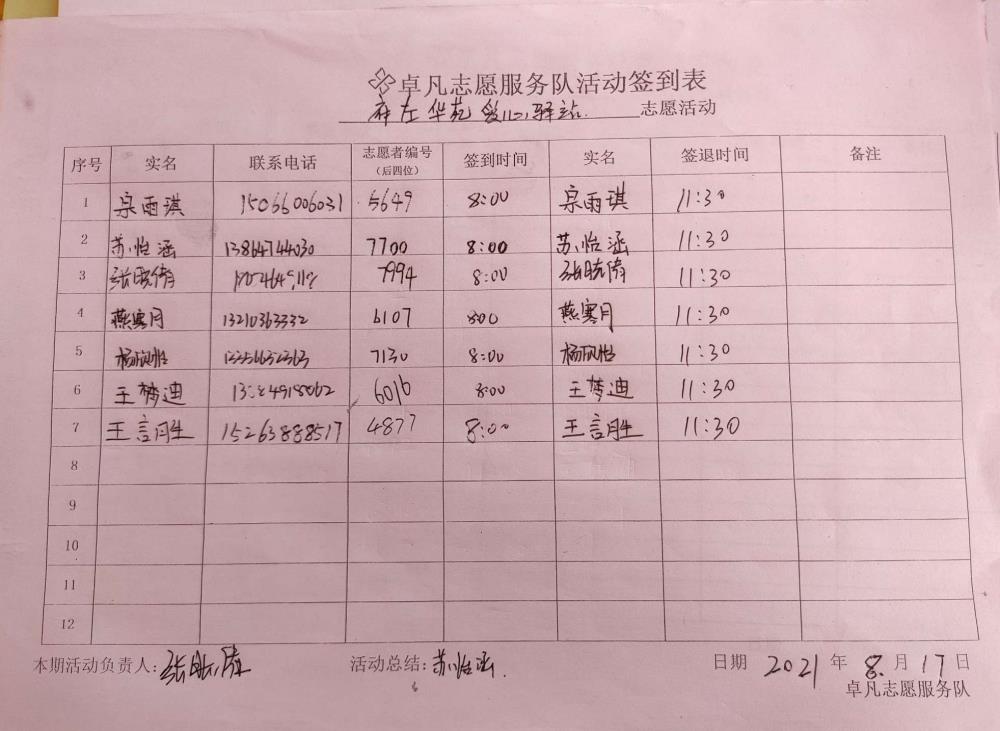 卓凡志愿服务队活动签到表
府左华苑爱心驿站 志愿活动
序号 实名 联系电话 志愿者编号（后四位） 签到时间 实名 签退时间 备注
1 宗雨琪 15066006031 5649 8:00 宗雨琪 11:30
2 苏怡涵 13864744030 7700 8:00 苏怡涵 11:30
3 7994 8:00 11:30
4 燕寒月 13210363332 6107 800 燕寒月 11:30
5 杨欣怡 7130 8:00 杨欣怡 11:30
6 王梦迪 6016 8:00 王梦迪 11:30
7 王言胜 15263888517 4877 8:00 王言胜 11:30
8
9
10
11
12
本期活动负责人: 活动总结:苏怡涵. 日期 2021 年 8. 月 17 日
卓凡志愿服务队